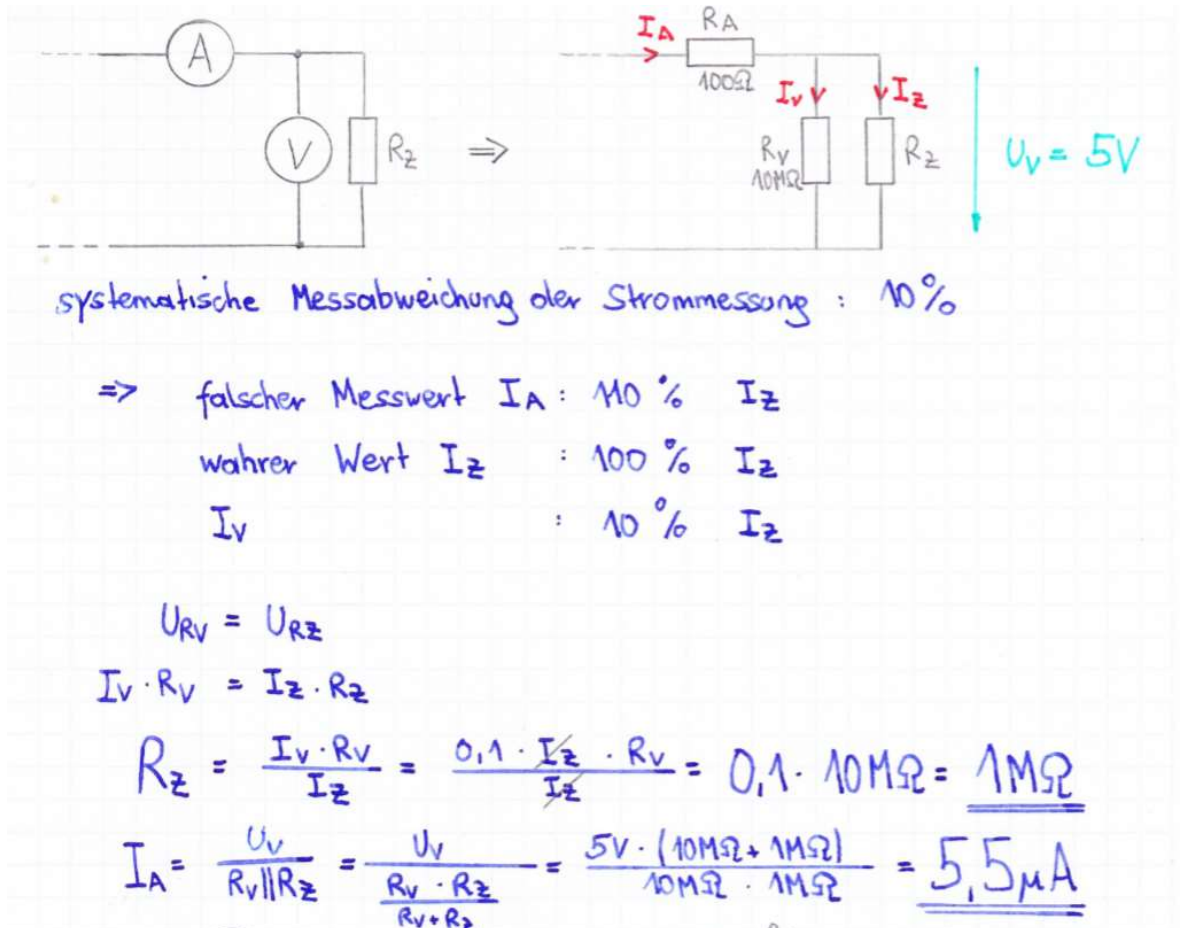 A
V
R_Z
⇒
I_A
R_A
100Ω
I_V
I_Z
R_V
10MΩ
R_Z
U_V = 5V
systematische Messabweichung der Strommessung : 10%
=> falscher Messwert I_A : 110 % I_Z
wahrer Wert I_Z : 100 % I_Z
I_V : 10 % I_Z
U_RV = U_RZ
I_V · R_V = I_Z · R_Z
R_Z = (I_V · R_V) / I_Z = (0,1 · I_Z · R_V) / I_Z = 0,1 · 10MΩ = 1MΩ
I_A = U_V / (R_V||R_Z) = U_V / ((R_V · R_Z) / (R_V + R_Z)) = (5V · (10MΩ + 1MΩ)) / (10MΩ · 1MΩ) = 5,5µA